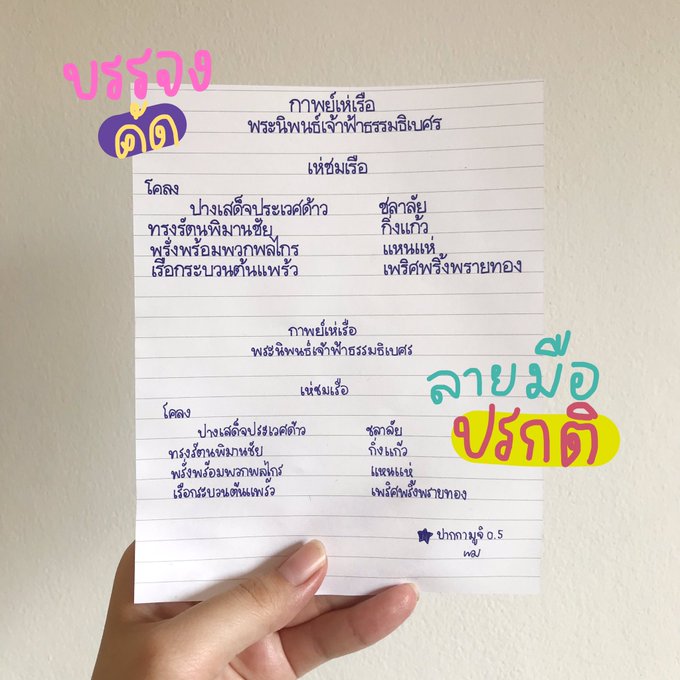 บรรจง
คัด
กาพย์เห่เรือ
พระนิพนธ์เจ้าฟ้าธรรมธิเบศร
เห่ชมเรือ
โคลง
ปางเสด็จประเวศด้าว ชลาลัย
ทรงรัตนพิมานชัย กิ่งแก้ว
พรั่งพร้อมพวกพลไกร แหนแห่
เรือกระบวนต้นแพร้ว เพริศพริ้งพรายทอง
กาพย์เห่เรือ
พระนิพนธ์เจ้าฟ้าธรรมธิเบศร
เห่ชมเรือ
โคลง
ปางเสด็จประเวศด้าว ชลาลัย
ทรงรัตนพิมานชัย กิ่งแก้ว
พรั่งพร้อมพวกพลไกร แหนแห่
เรือกระบวนต้นแพร้ว เพริศพริ้งพรายทอง
ลายมือ
ปรกติ
ปากกามูจิ 0.5